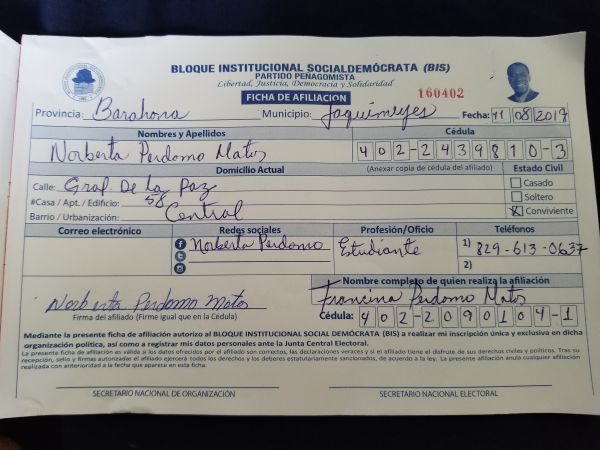 BLOQUE INSTITUCIONAL SOCIALDEMÓCRATA (BIS)
PARTIDO PEÑAGOMISTA
Libertad, Justicia, Democracia y Solidaridad
FICHA DE AFILIACIÓN
160402
Provincia: Barahona Municipio: Jaquimeyes Fecha: 11/08/2019
Nombres y Apellidos Cédula
Norberta Perdomo Matos 402-2439810-3
Domicilio Actual (Anexar copia de cédula del afiliado) Estado Civil
Calle: Gral. De La Paz Casado
#Casa / Apt. / Edificio: 58 Soltero
Barrio / Urbanización: Central X Conviviente
Correo electrónico Redes sociales Profesión/Oficio Teléfonos
Norberta Perdomo Estudiante 1) 829-613-0637
2)
Nombre completo de quien realiza la afiliación
Norberta Perdomo Matos Francina Perdomo Matos
Firma del afiliado (Firme igual que en la Cédula) Cédula: 402-2090104-1
Mediante la presente ficha de afiliación autorizo al BLOQUE INSTITUCIONAL SOCIAL DEMÓCRATA (BIS) a realizar mi inscripción única y exclusiva en dicha
organización política, así como a registrar mis datos personales ante la Junta Central Electoral.
La presente ficha de afiliación es válida si los datos ofrecidos por el afiliado son correctos, las declaraciones veraces y si el afiliado tiene el disfrute de sus derechos civiles y políticos. Tras su
recepción, sello y firmas autorizadas el afiliado ejercerá todos los derechos y los deberes estatutariamente sancionados, de acuerdo a la ley. La presente afiliación anula cualquier afiliación
realizada con anterioridad a la fecha que aparece en esta ficha.
SECRETARIO NACIONAL DE ORGANIZACIÓN SECRETARIO NACIONAL ELECTORAL